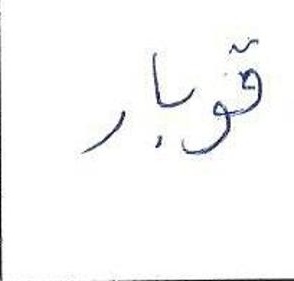 قوبار